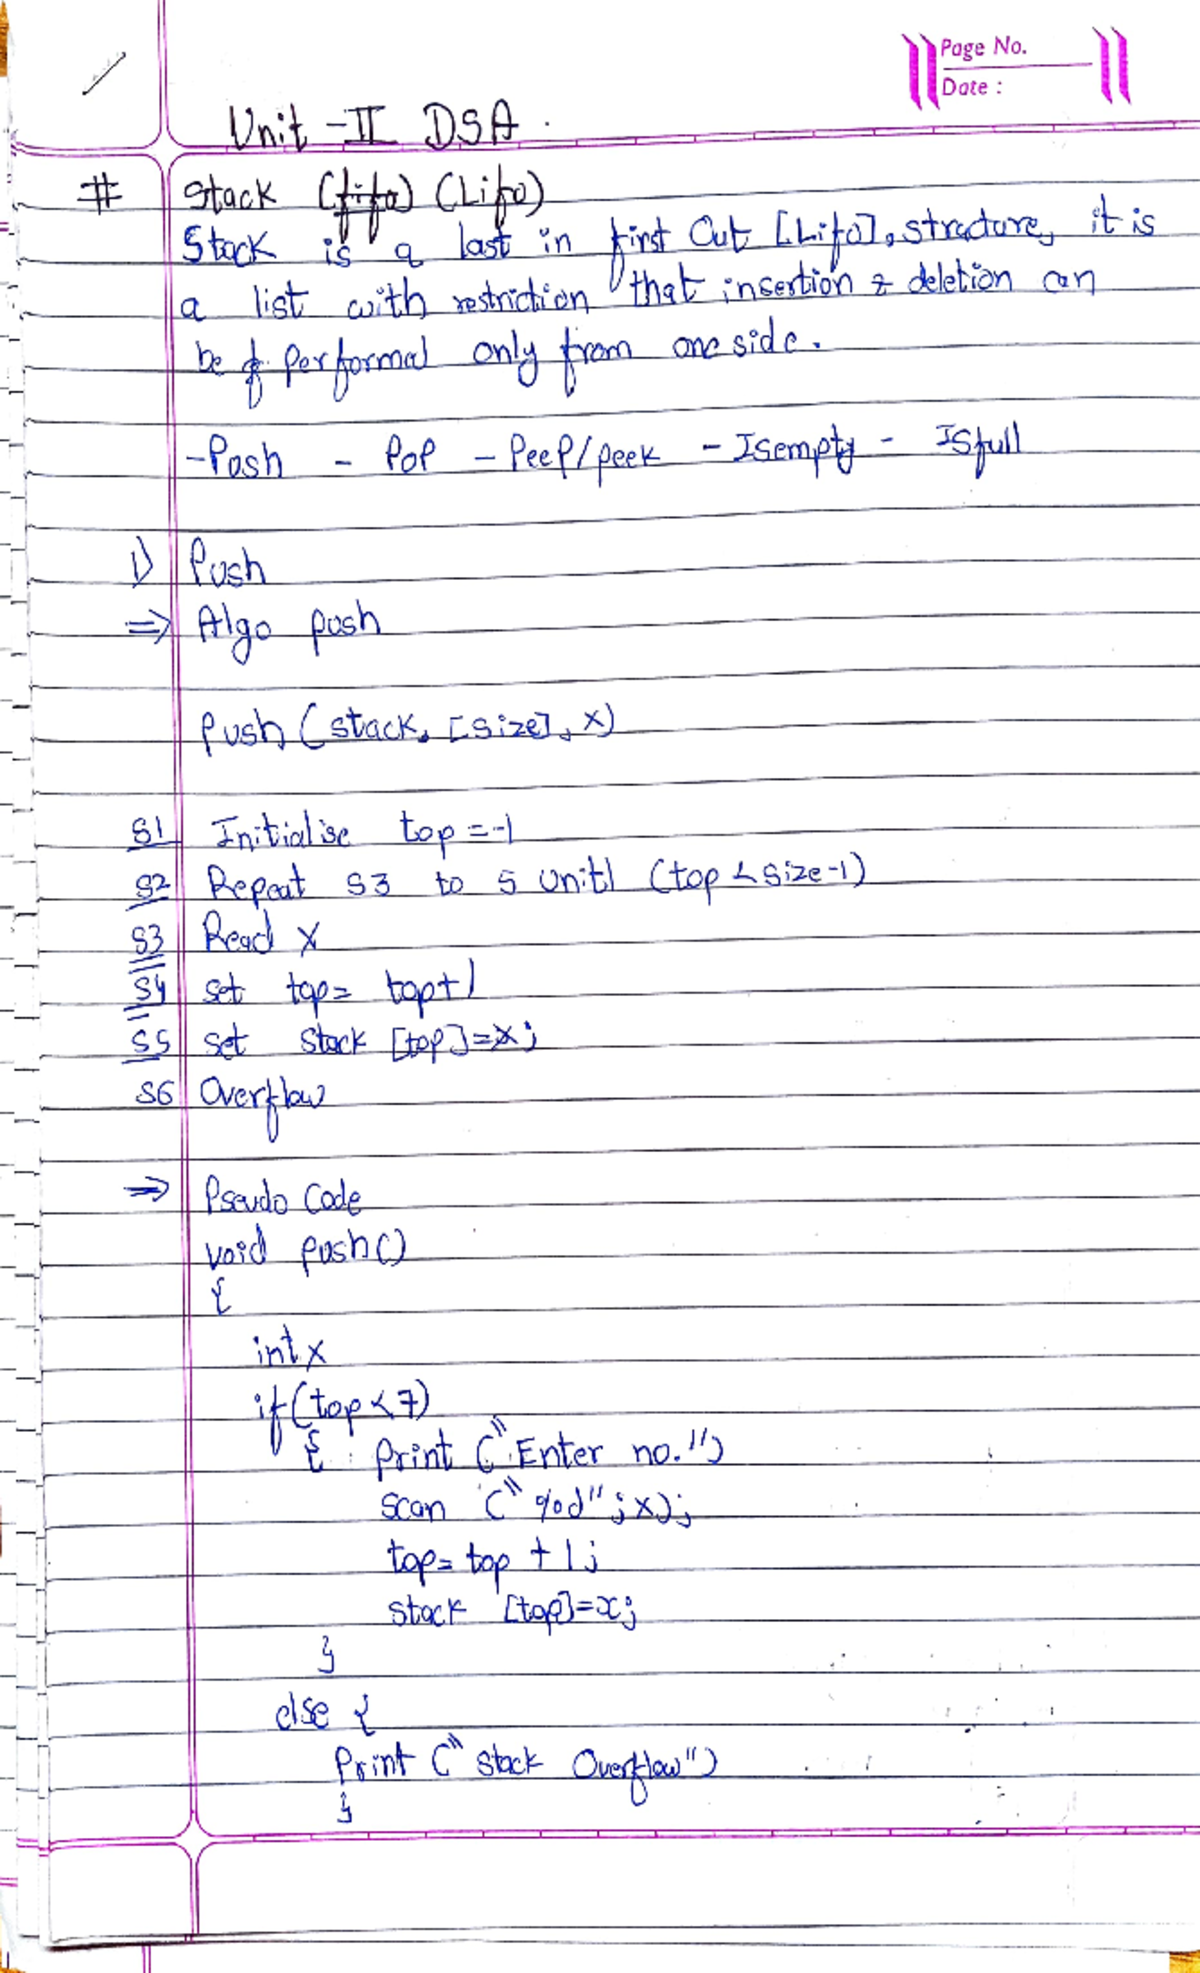 Page No.
Date :
Unit - II DSA .
# Stack (fifo) (Lifo)
Stack is a last in first Out [Lifo], structure, it is
a list with restriction that insertion & deletion can
be performal only from one side.
- Push - POP - PeeP/peek - Isempty - ISfull
1) Push
⇒ Algo push
Push (stack, [size], x)
S1 Initialise top = -1
S2 Repeat S3 to 5 unitl (top < size-1)
S3 Read X
S4 set top = top+1
S5 set stack [top]=x;
S6 Overflow
⇒ Pseudo Code
void push()
{
int x
if (top < 7)
{ Print ("Enter no.")
scan ("%d" ; x);
top = top + 1;
stack [top]=x;
}
else {
Print (" stack Overflow")
}